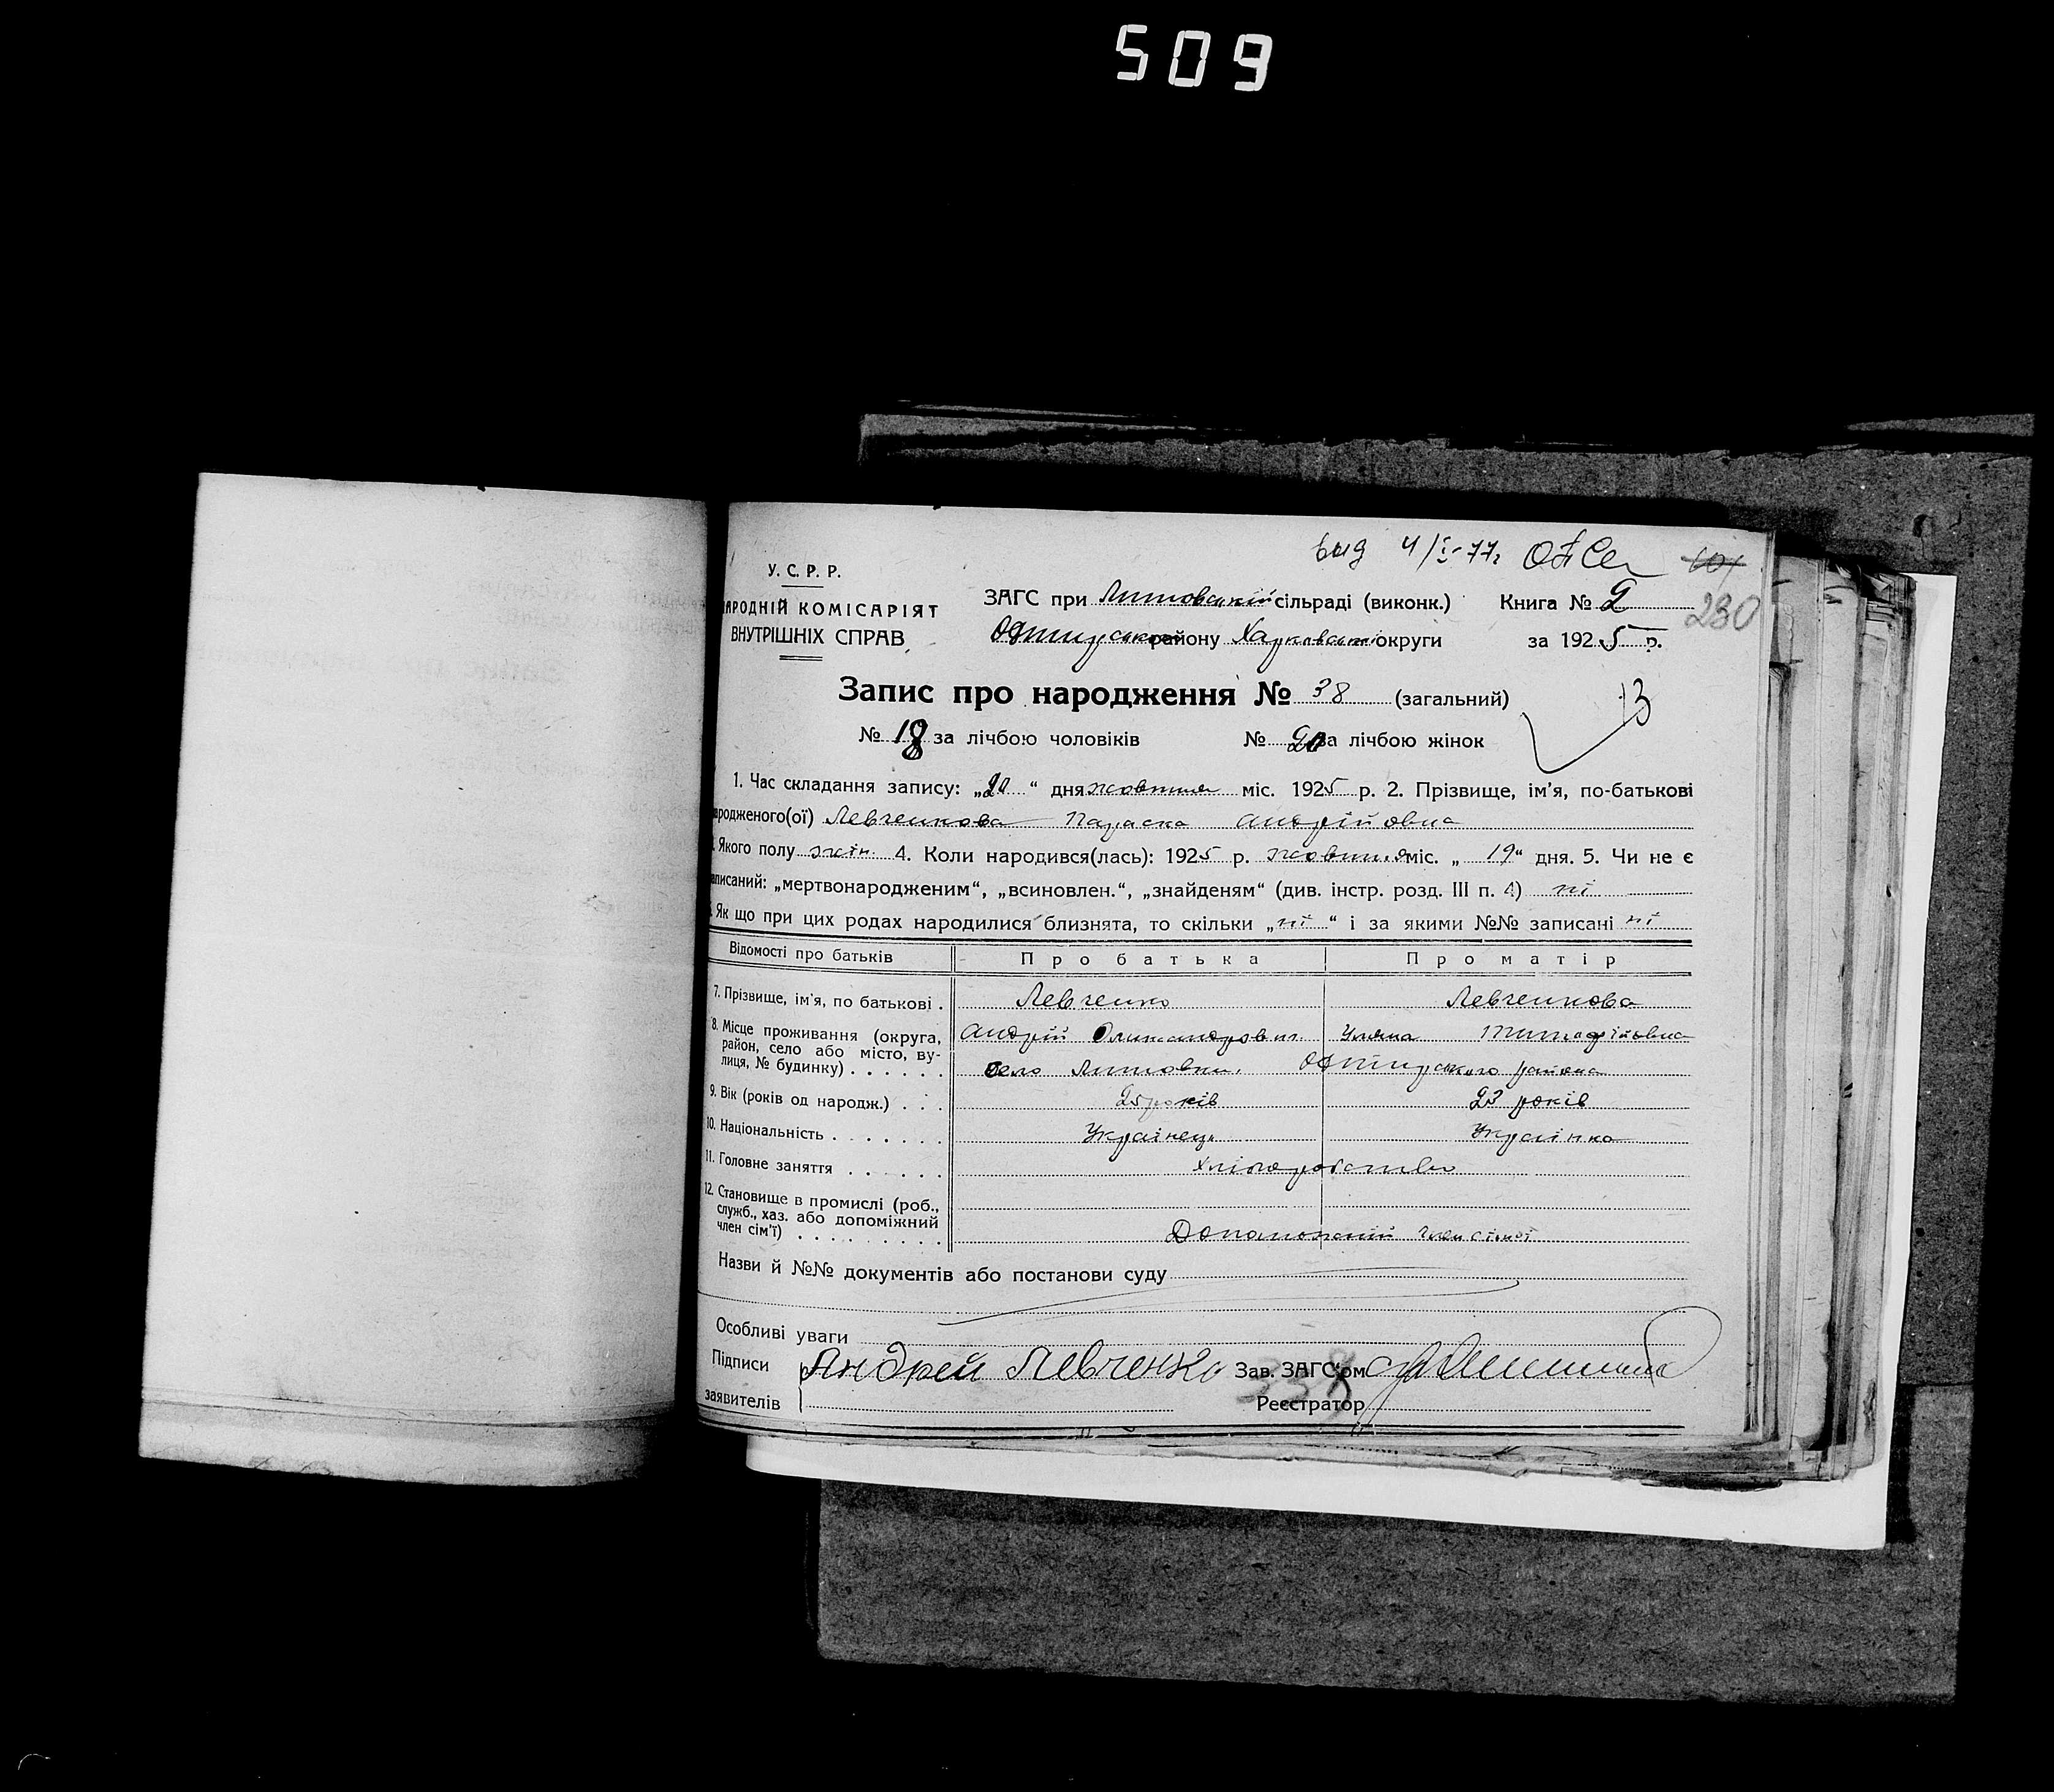 509
вид 4/I-77г
230
У. С. Р. Р.
НАРОДНІЙ КОМІСАРІЯТ
ВНУТРІШНІХ СПРАВ,
ЗАГС при Лютовській сільраді (виконк.) Книга № 2
району Харківської округи за 1925 р.
Запис про народження № 38 (загальний)
13
№ 18 за лічбою чоловіків № 20 за лічбою жінок
1. Час складання запису: „20“ дня жовтня міс. 1925 р. 2. Прізвище, ім'я, по-батькові
ародженого(ої) Левченкова Параска Андрійовна
Якого полу жін. 4. Коли народився(лась): 1925 р. жовтня міс. „19“ дня. 5. Чи не є
аписаний: „мертвонародженим“, „всиновлен.“, „знайденям“ (див. інстр. розд. III п. 4) ні
Як що при цих родах народилися близнята, то скільки „ні“ і за якими №№ записані ні
Відомості про батьків Про батька Про матір
7. Прізвище, ім'я, по батькові . Левченко Левченкова
8. Місце проживання (округа, район, село або місто, ву-
лиця, № будинку) . . . . . .
Андрій Олександрович Уляна Тимофіївна
село Лютовка, района
9. Вік (років од народж.) . . . 25 років 23 років
10. Національність . . . . . . . Українець Українка
11. Головне заняття . . . . . Хліборобство
12. Становище в промислі (роб.,
служб., хаз. або допоміжний
член сім'ї) . . . . . . . . . Допоможний член сімї
Назви й №№ документів або постанови суду
Особливі уваги
Підписи Андрей Левченко Зав. ЗАГС'ом
заявителів Реєстратор
338